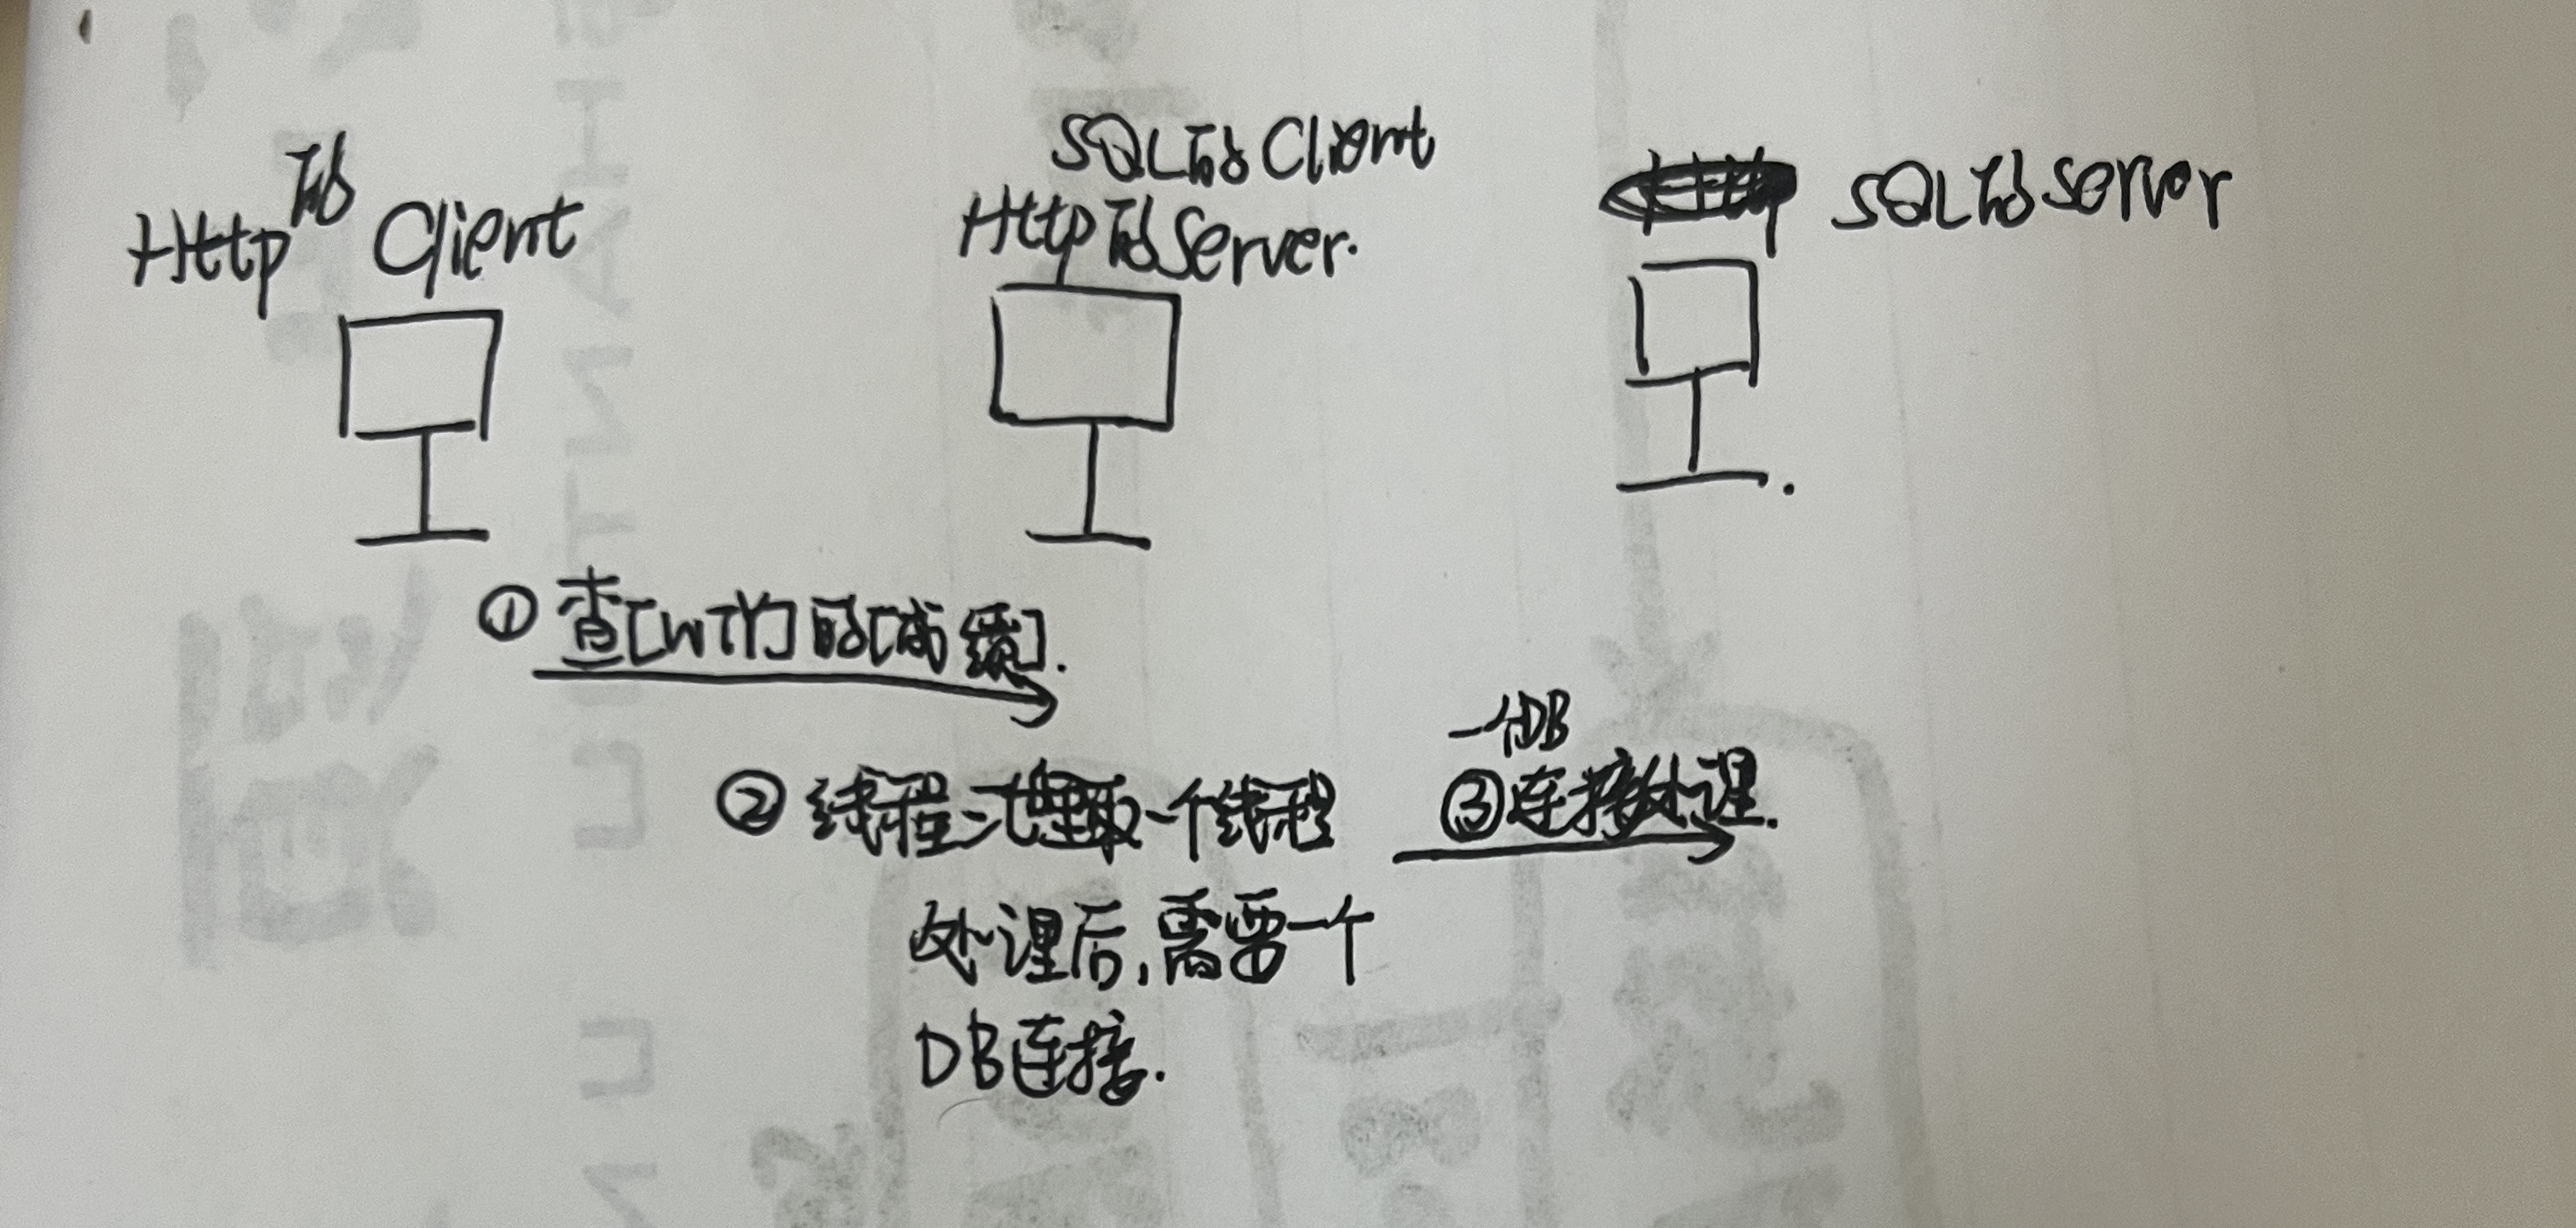 Http的 Client
SQL的Client
Http的Server.
SQL的server
① 查[WTY]的[成绩].
② 线程池里取一个线程
处理后,需要一个
DB连接.
一个DB
③连接处理.